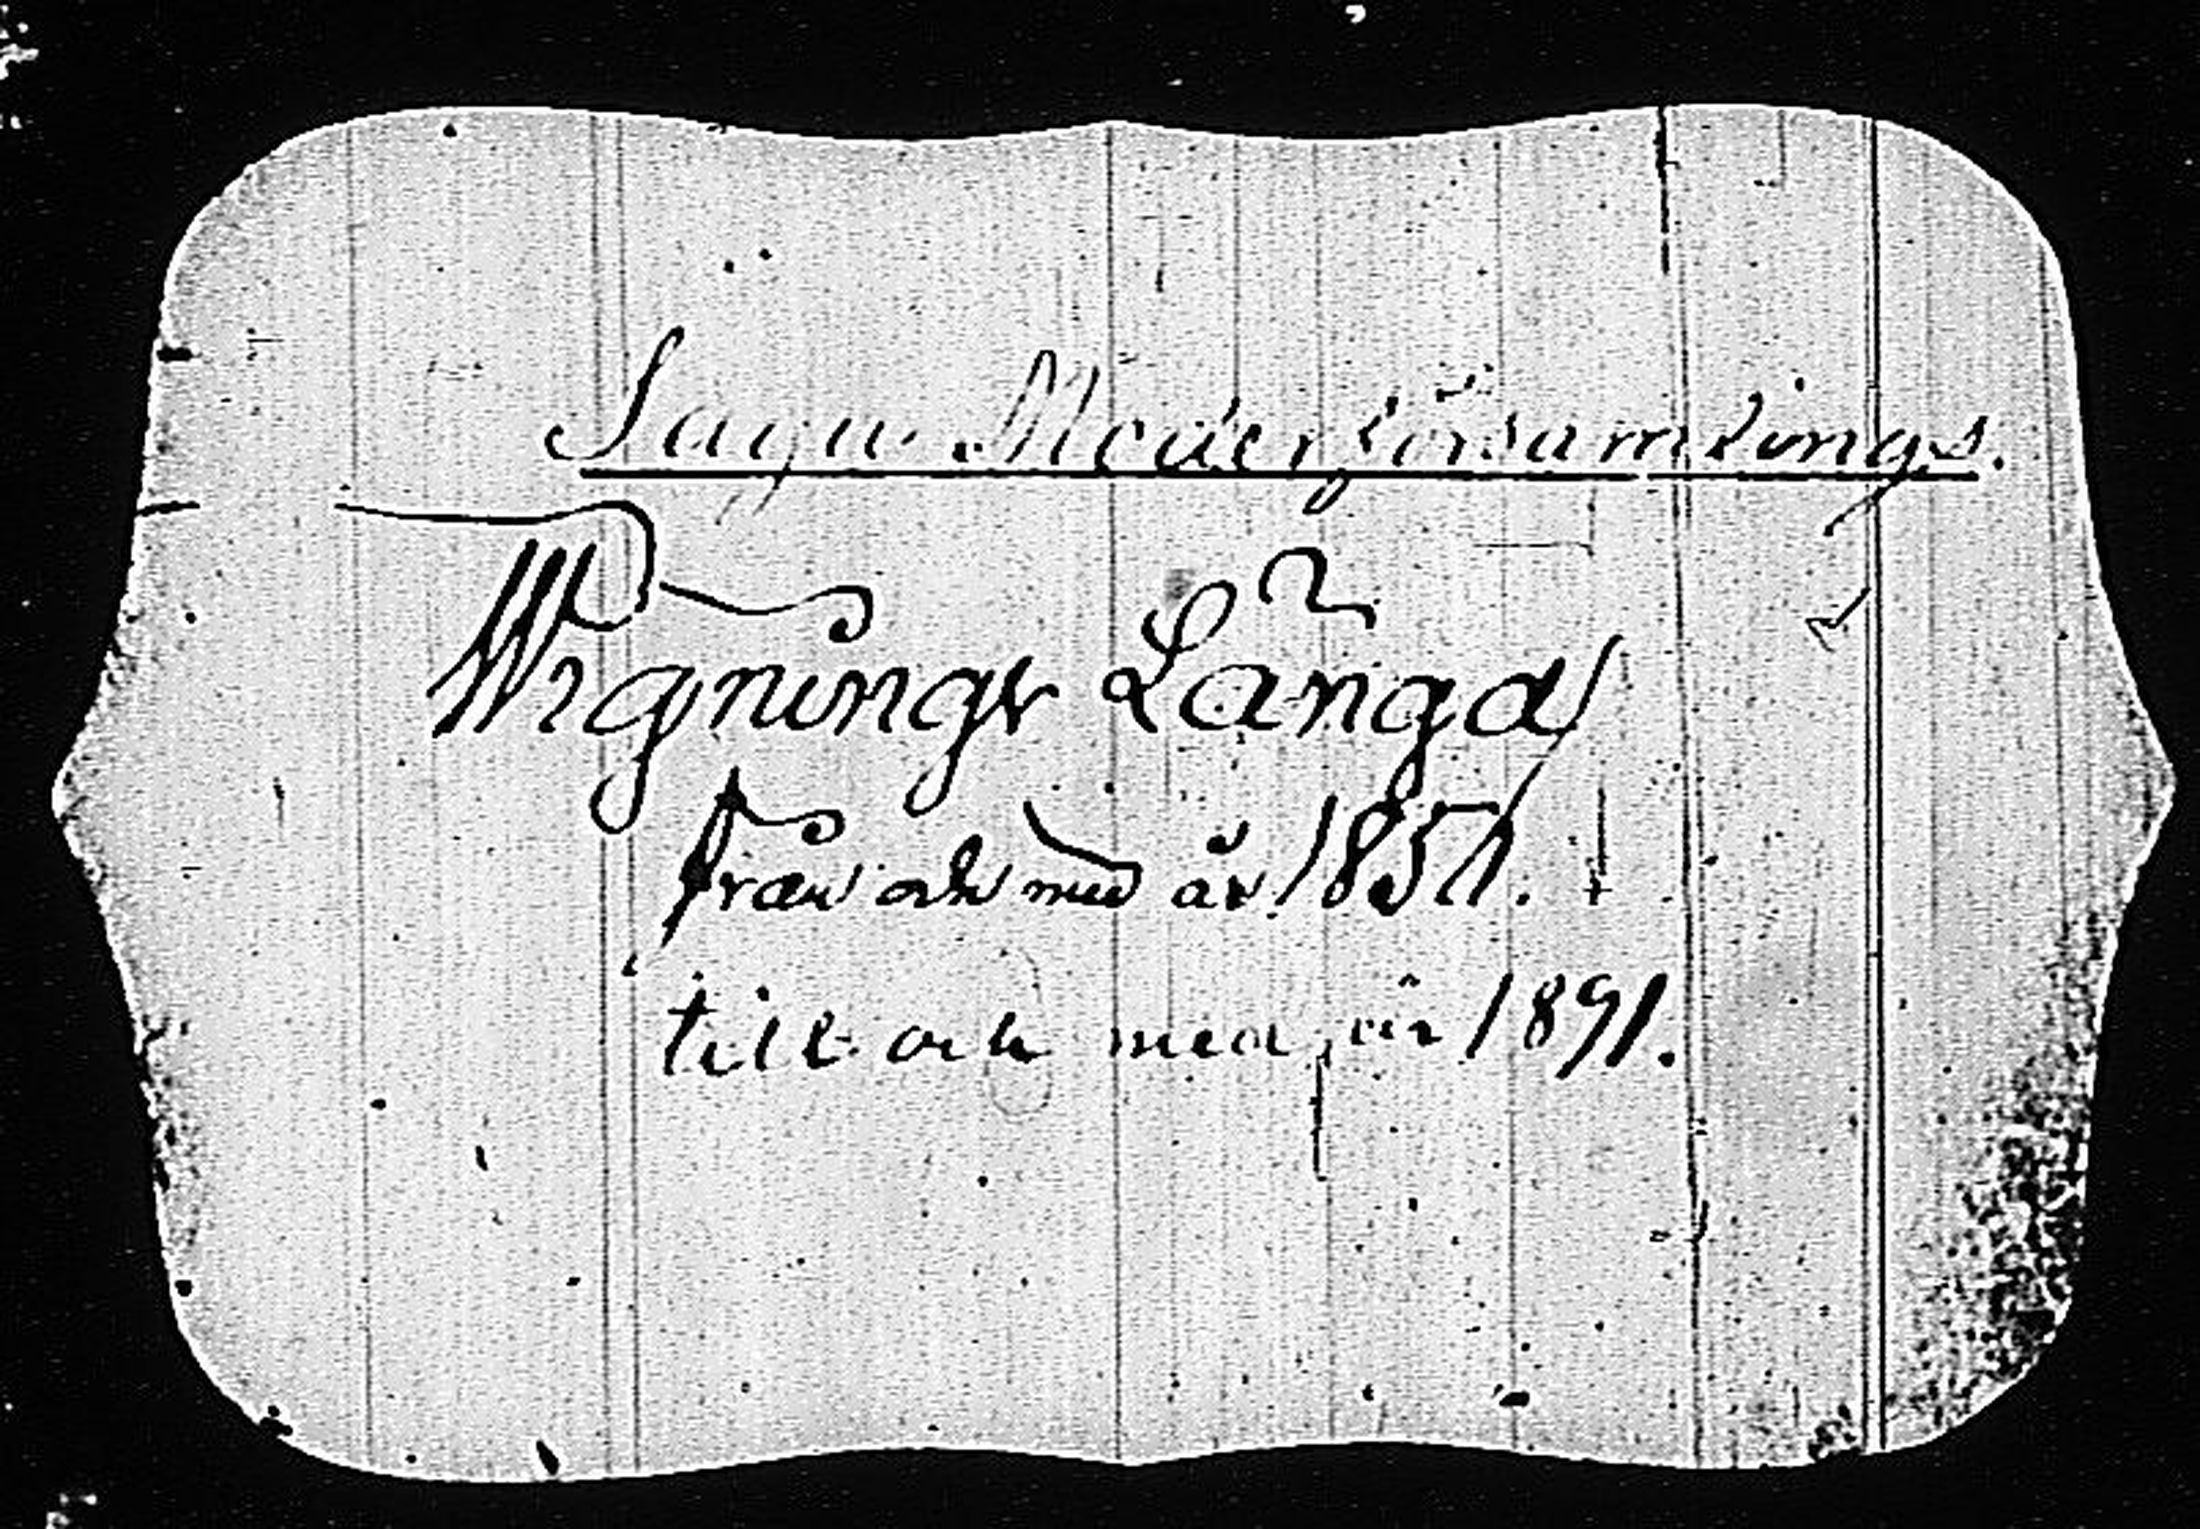 Sagu Moderförsamlings.
Wignings Längd
från och med år 1851.
till och med år 1891.